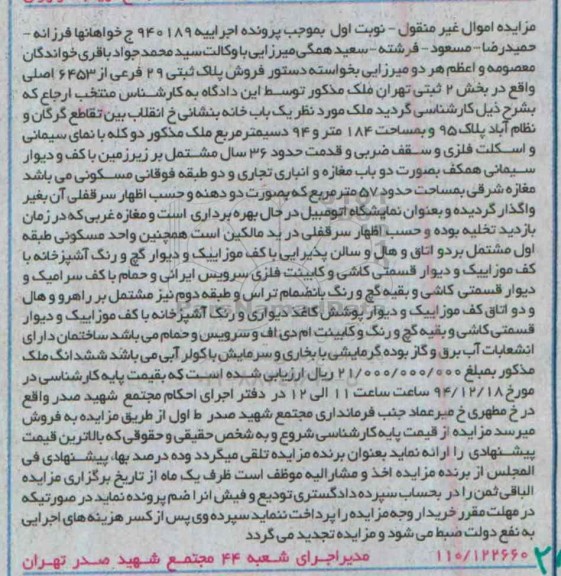 مزایده اموال غیر منقول - نوبت اول بموجب پرونده اجراییه ۹۴۰۱۸۹ ج خواهانها فرزانه -
حمیدرضا - مسعود - فرشته - سعید همگی میرزایی با وکالت سید محمد جواد باقری خواندگان
معصومه و اعظم هر دو میرزایی بخواسته دستور فروش پلاک ثبتی ۲۹ فرعی از ۶۴۵۳ اصلی
واقع در بخش ۲ ثبتی تهران ملک مذکور توسط این دادگاه به کارشناس منتخب ارجاع که
بشرح ذیل کارشناسی گردید ملک مورد نظر یک باب خانه بنشانی خ انقلاب بین تقاطع گرگان و
نظام آباد پلاک ۹۵ و بمساحت ۱۸۴ متر و ۹۴ دسیمتر مربع ملک مذکور دو کله با نمای سیمانی
و اسکلت فلزی و سقف ضربی و قدمت حدود ۳۶ سال مشتمل بر زیرزمین با کف و دیوار
سیمانی همکف بصورت دو باب مغازه و انباری تجاری و دو طبقه فوقانی مسکونی می باشد
مغازه شرقی بمساحت حدود ۵۷ متر مربع که بصورت دو دهنه و حسب اظهار سرقفلی آن بغیر
واگذار گردیده و بعنوان نمایشگاه اتومبیل در حال بهره برداری است و مغازه غربی که در زمان
بازدید تخلیه بوده و حسب اظهار سرقفلی در ید مالکین است همچنین واحد مسکونی طبقه
اول مشتمل بر دو اتاق و هال و سالن پذیرایی با کف موزاییک و دیوار گچ و رنگ آشپزخانه با
کف موزاییک و دیوار قسمتی کاشی و کابینت فلزی سرویس ایرانی و حمام با کف سرامیک و
دیوار قسمتی کاشی و بقیه گچ و رنگ بانضمام تراس و طبقه دوم نیز مشتمل بر راهرو و هال
و دو اتاق کف موزاییک و دیوار پوشش کاغذ دیواری و رنگ آشپزخانه با کف موزاییک و دیوار
قسمتی کاشی و بقیه گچ و رنگ و کابینت ام دی اف و سرویس و حمام می باشد ساختمان دارای
انشعابات آب برق و گاز بوده گرمایشی با بخاری و سرمایش با کولر آبی می باشد ششدانگ ملک
مذکور بمبلغ ۲۱/۰۰۰/۰۰۰/۰۰۰ ریال ارزیابی شده است که بقیمت پایه کارشناسی در
مورخ ۹۴/۱۲/۱۸ ساعت ساعت ۱۱ الی ۱۲ در دفتر اجرای احکام مجتمع شهید صدر واقع
در خ مطهری خ میرعماد جنب فرمانداری مجتمع شهید صدر ط اول از طریق مزایده به فروش
میرسد مزایده از قیمت پایه کارشناسی شروع و به شخص حقیقی و حقوقی که بالاترین قیمت
پیشنهادی را ارائه نماید بعنوان برنده مزایده تلقی میگردد و ده درصد بهاء پیشنهادی فی
المجلس از برنده مزایده اخذ و مشارالیه موظف است ظرف یک ماه از تاریخ برگزاری مزایده
الباقی ثمن را در بحساب سپرده دادگستری تودیع و فیش انرا ضم پرونده نماید در صورتیکه
در مهلت مقرر خریدار وجه مزایده را پرداخت ننماید سپرده وی پس از کسر هزینه های اجرایی
به نفع دولت ضبط می شود و مزایده تجدید می گردد
۱۱۰/۱۲۲۶۶۰ مدیر اجرای شعبه ۴۴ مجتمع شهید صدر تهران